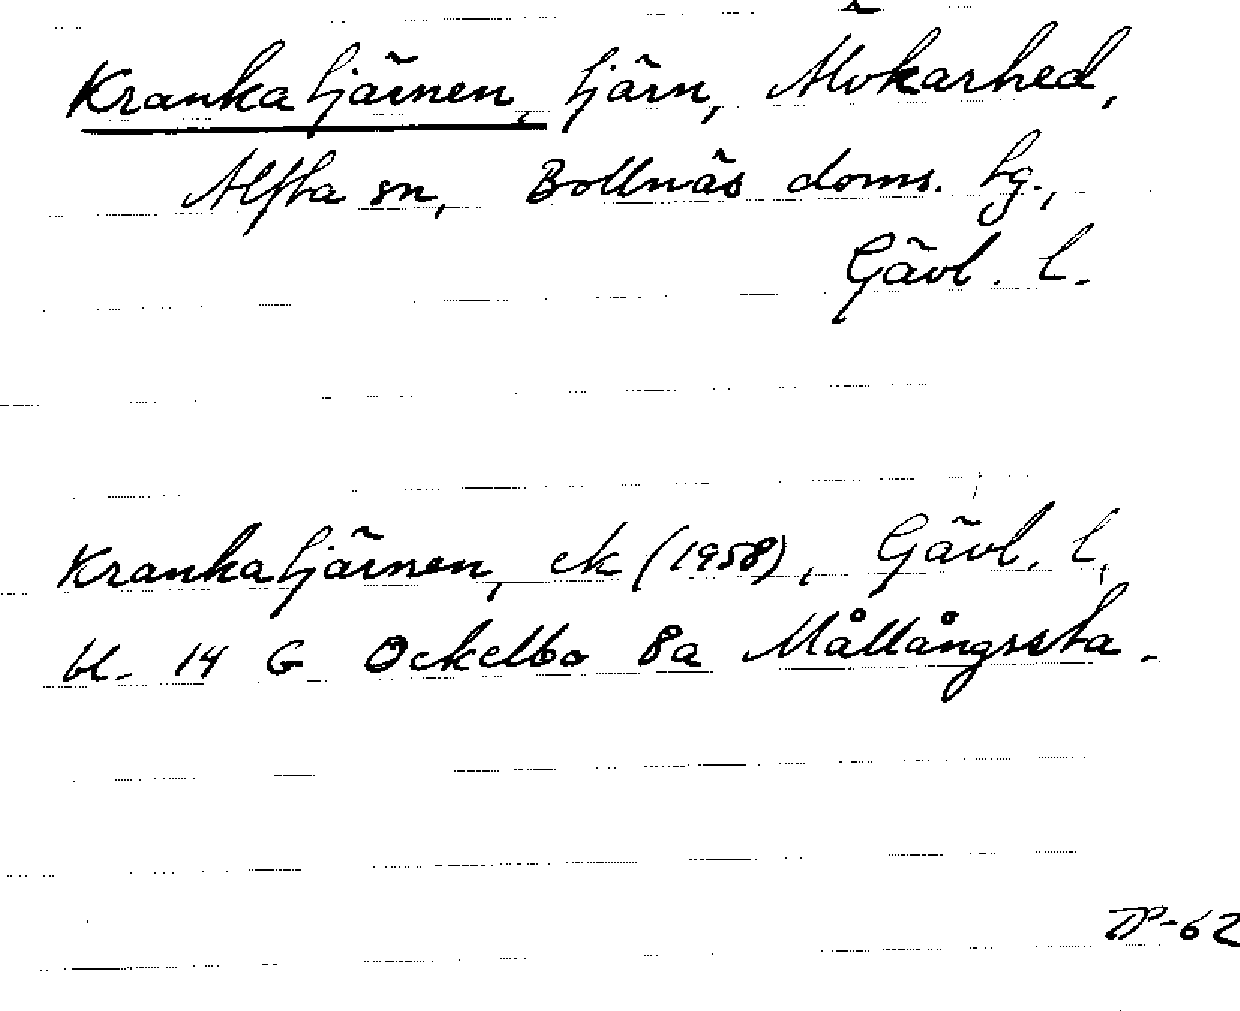 Krankatjärnen, tjärn, Älvkarhed,
Alfta sn, Bollnäs doms. tg.,
Gävl. l.
Krankatjärnen, ek (1958), Gävl. l.
bl. 14 G Ockelbo 8a Mållångssta.
DP-62